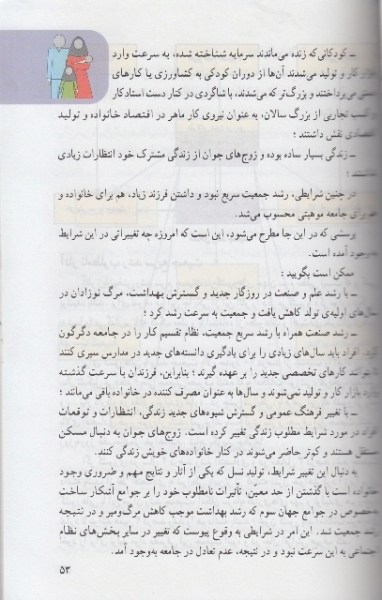 ـ کودکانی که زنده می‌ماندند سرمایه شناخته شده، به سرعت وارد
کار و تولید می‌شدند آن‌ها از دوران کودکی به کشاورزی یا کارهای
می‌پرداختند و بزرگ‌تر که می‌شدند، با شاگردی در کنار دست استادکار
کسب تجاربی از بزرگ سالان، به عنوان نیروی کار ماهر در اقتصاد خانواده و تولید
اقتصادی نقش داشتند ؛
ـ زندگی بسیار ساده بوده و زوج‌های جوان از زندگی مشترک خود انتظارات زیادی
در چنین شرایطی، رشد جمعیت سریع نبود و داشتن فرزند زیاد، هم برای خانواده و
هم برای جامعه موهبتی محسوب می‌شد.
پرسشی که در این جا مطرح می‌شود، این است که امروزه چه تغییراتی در این شرایط
به‌وجود آمده است.
ممکن است بگویید :
ـ با رشد علم و صنعت در روزگار جدید و گسترش بهداشت، مرگ نوزادان در
سال‌های اولیه‌ی تولد کاهش یافت و جمعیت به سرعت رشد کرد ؛
ـ رشد صنعت همراه با رشد سریع جمعیت، نظام تقسیم کار را در جامعه دگرگون
کرد. افراد باید سال‌های زیادی را برای یادگیری دانسته‌های جدید در مدارس سپری کنند
تا بتوانند کارهای تخصصی جدید را بر عهده گیرند ؛ بنابراین، فرزندان با سرعت گذشته
وارد بازار کار و تولید نمی‌شوند و سال‌ها به عنوان مصرف کننده در خانواده باقی می‌مانند ؛
ـ با تغییر فرهنگ عمومی و گسترش شیوه‌های جدید زندگی، انتظارات و توقعات
افراد در مورد شرایط مطلوب زندگی تغییر کرده است. زوج‌های جوان به دنبال مسکن
مستقل هستند و کم‌تر حاضر می‌شوند در کنار خانواده‌های خویش زندگی کنند.
به دنبال این تغییر شرایط، تولید نسل که یکی از آثار و نتایج مهم و ضروری وجود
خانواده است با گذشتن از حد معیّن، تأثیرات نامطلوب خود را بر جوامع آشکار ساخت
به‌خصوص در جوامع جهان سوم که رشد بهداشت موجب کاهش مرگ‌ومیر و در نتیجه
رشد جمعیت شد. این امر در شرایطی به وقوع پیوست که تغییر در سایر بخش‌های نظام
اجتماعی به این سرعت نبود و در نتیجه، عدم تعادل در جامعه به‌وجود آمد.
۵۳